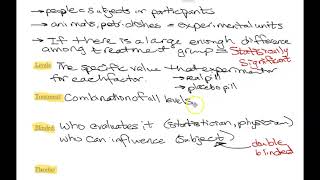 →people = subjects or participants
→animals, petri dishes → experimental units
→ If there is a large enough difference
among treatment groups = Statistically
Significant
Levels The specific value that experimentor
for each factor. → real pill
→ placebo pill
Treatment Combination of all levels
Blinded Who evaluates it (statistician, physician)
who can influence (subject)
double
blinded
Placebo